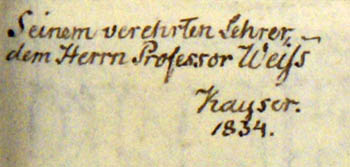 Seinem verehrten Lehrer,
dem Herrn Professor Weiſs
Kayser.
1834.